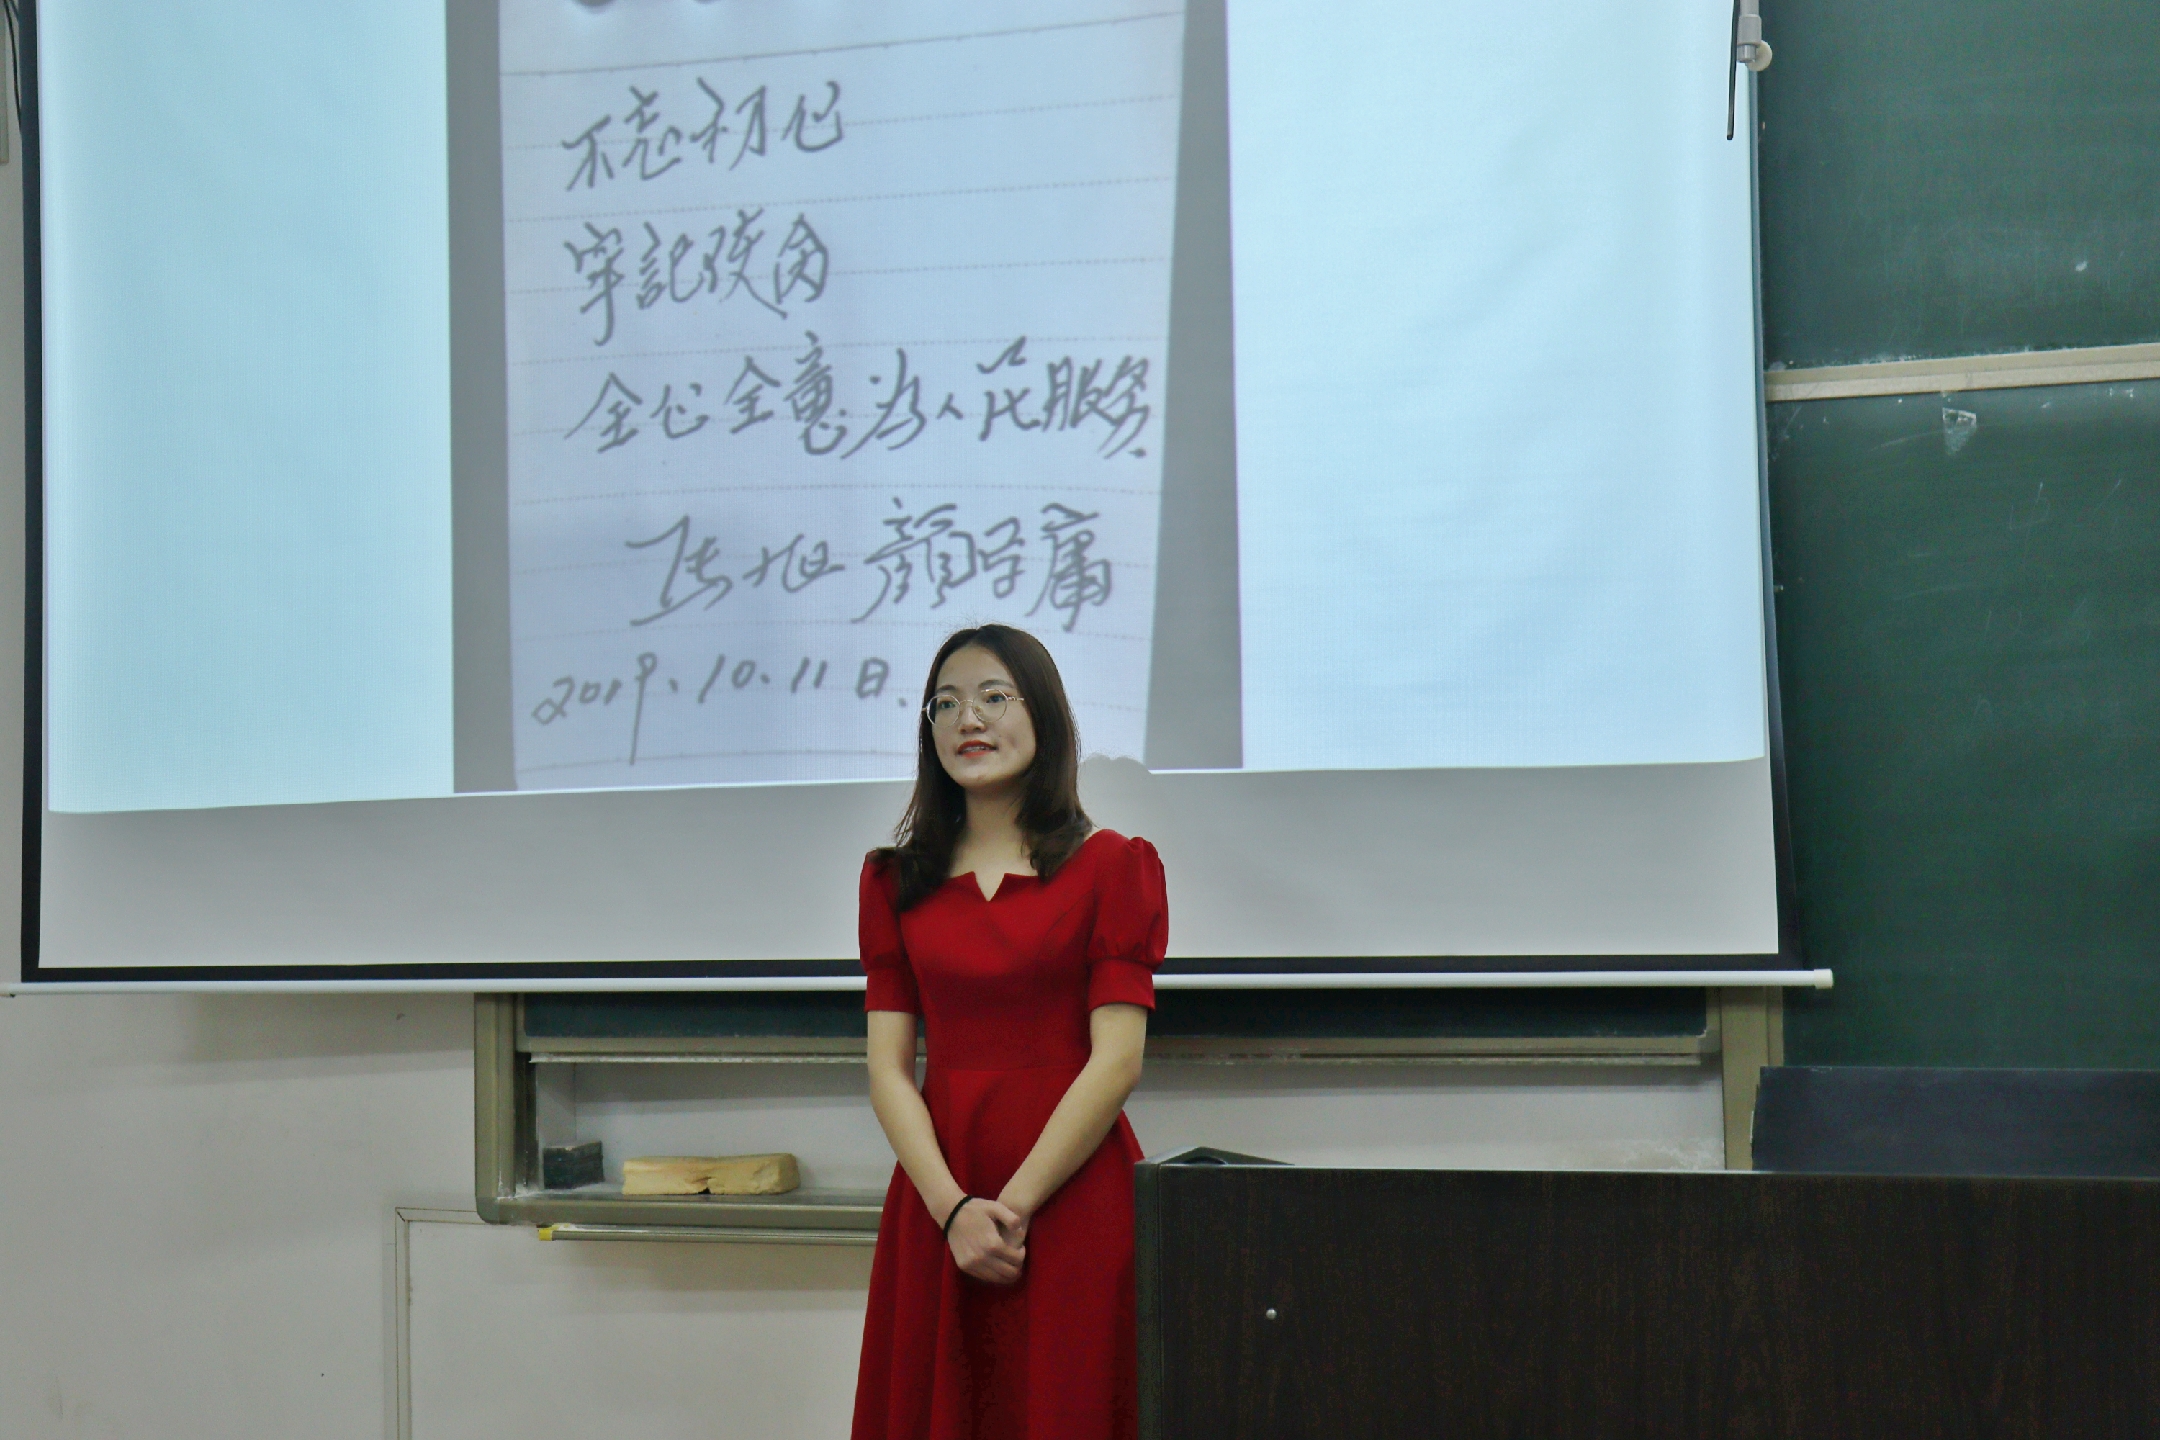 不忘初心
牢記使命
全心全意为人民服务
张旭 顏学庸
2019.10.11日.